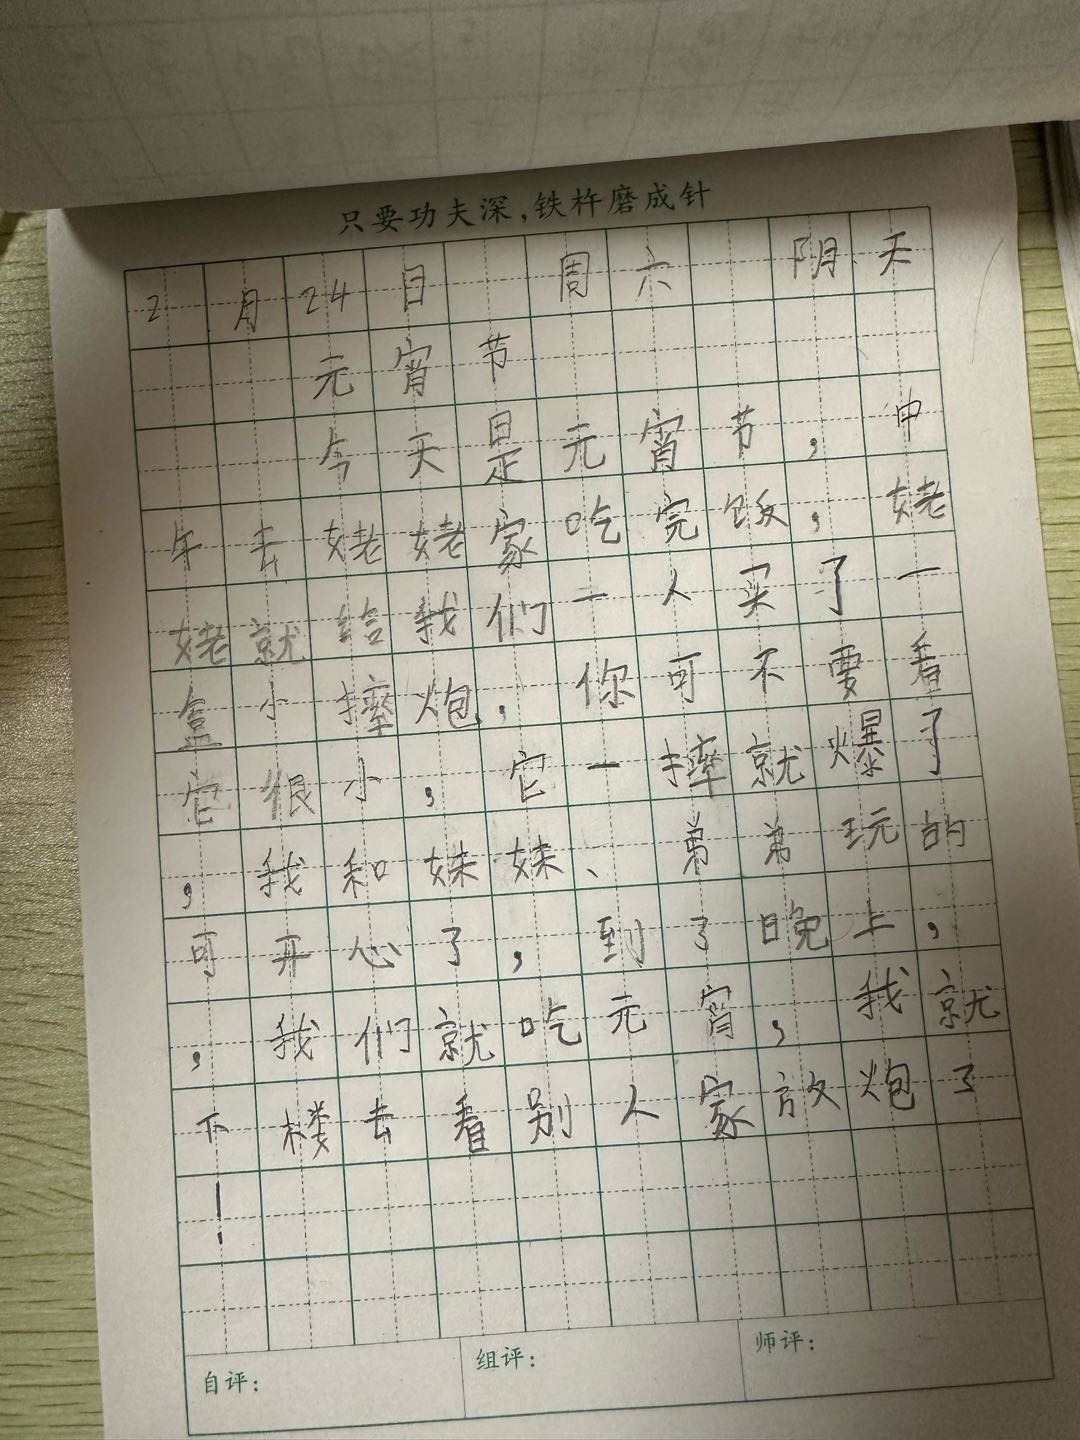 只要功夫深,铁杵磨成针
2月24日 周六 阴天
元宵节
今天是元宵节，中
午去姥姥家吃完饭，姥
姥就给我们一人买了一
盒小摔炮，你可不要看
它很小，它一摔就爆了
，我和妹妹、弟弟玩的
可开心了，到了晚上，
，我们就吃元宵，我就
下楼去看别人家放炮了
！
自评: 组评: 师评: